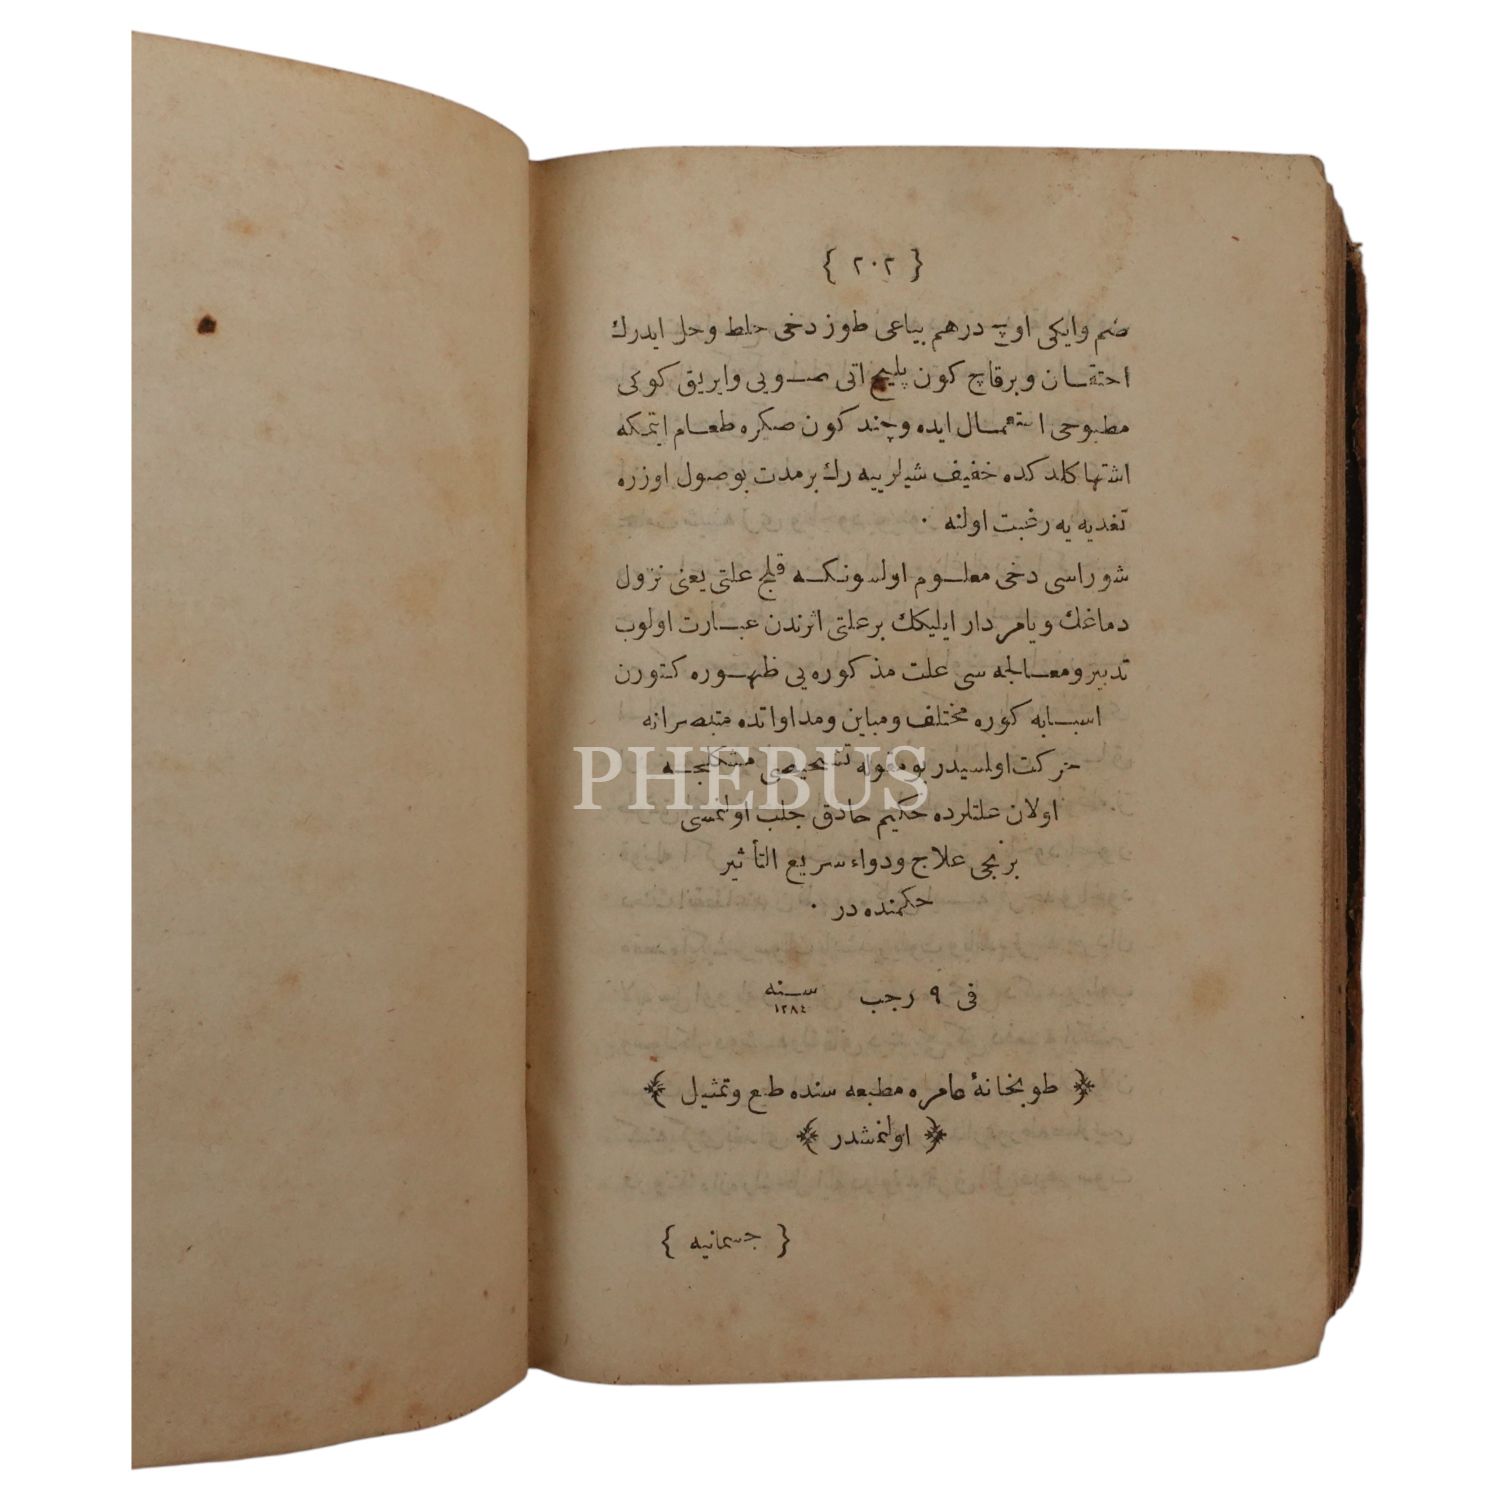 { ٢٠٢ }
ضم وایکی اوچ درهم بیاغی طوز دخی خلط و حل ایدرك
احتقان و برقاچ کون پلیچ اتی صویی وایریق کوکی
مطبوخی استعمال ایده و چند کون صکره طعام ایتمکه
اشتها کلدکده خفیف شیلر ییه رك برمدت بوصول اوزره
تغدیه یه رغبت اولنه ٠
شوراسی دخی معلوم اولسونکه فلج علتی یعنی نزول
دماغك ویامردار ایلیکك برعلتی اثرندن عبارت اولوب
تدبیر ومعالجه سی علت مذکوره یی ظهوره کتورن
اسبابه کوره مختلف ومباین ومداواتده متبصرانه
حرکت اولسیدر بو مقوله تشخیصی مشکلجه
اولان علتلرده حکیم حاذق جلب اولنمسی
برنجی علاج ودواء سریع التأثیر
حکمنده در ٠
فی ٩ رجب سنه ١٢٨٤
﴿ طوبخانهٔ عامره مطبعه سنده طبع وتمثیل ﴾
﴿ اولنمشدر ﴾
{ جسمانیه }
PHEBUS